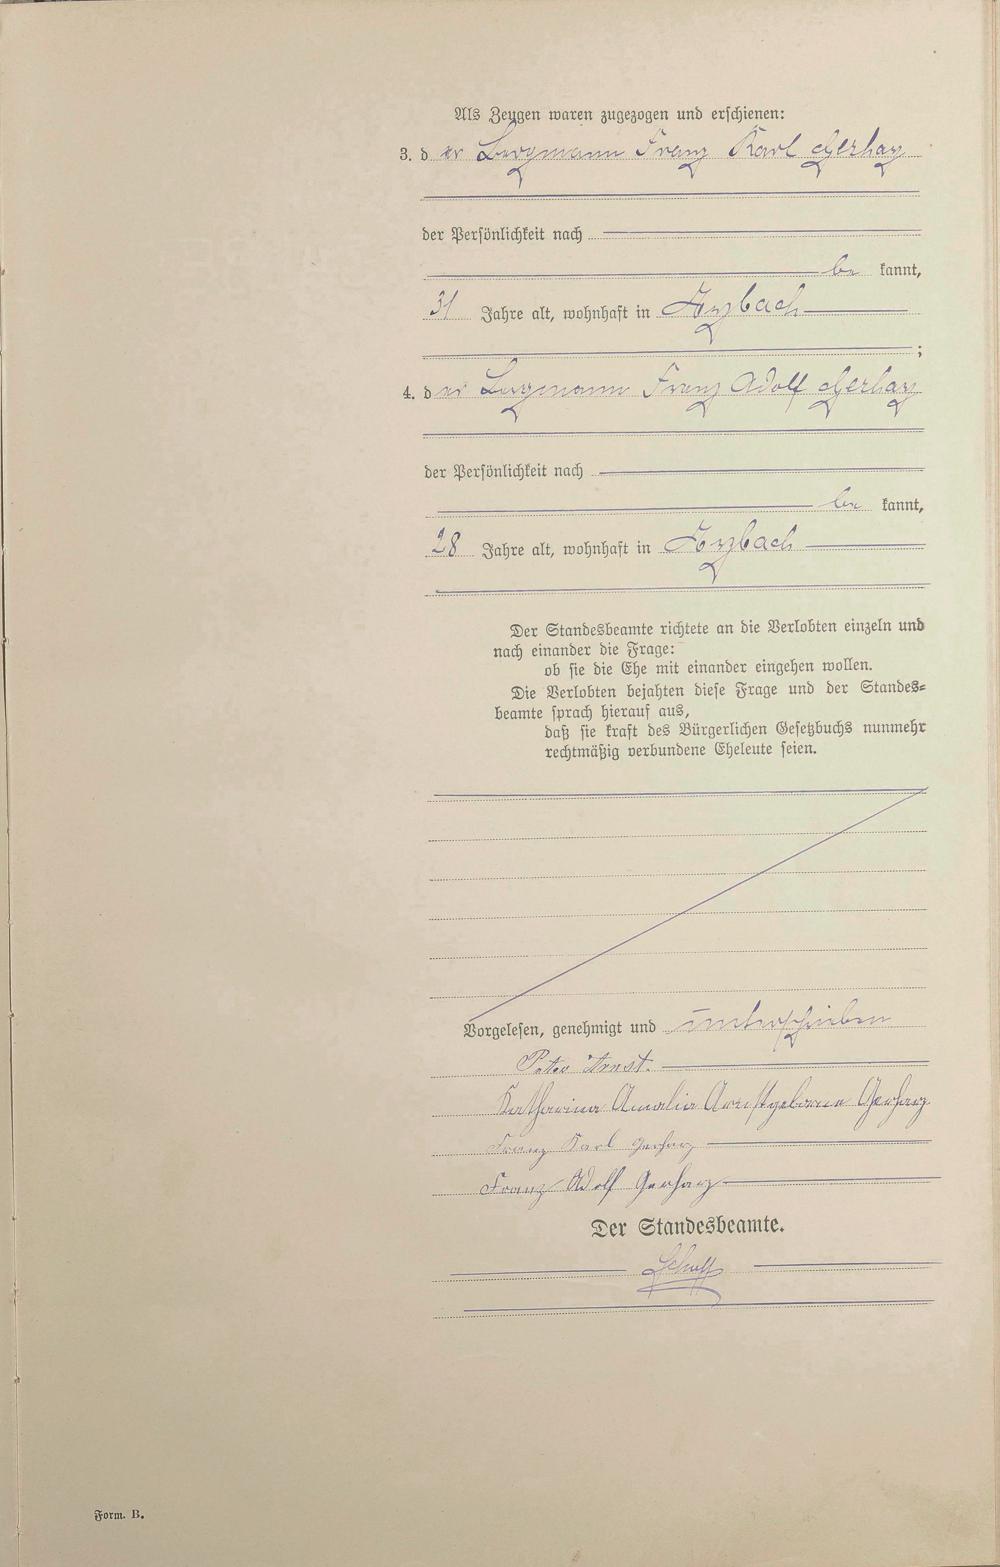 Als Zeugen waren zugezogen und erschienen:
3. der Bergmann Franz Karl Gerharz
der Persönlichkeit nach
be kannt,
31 Jahre alt, wohnhaft in Arzbach
;
4. der Bergmann Franz Adolf Gerharz
der Persönlichkeit nach
be kannt,
28 Jahre alt, wohnhaft in Arzbach
Der Standesbeamte richtete an die Verlobten einzeln und
nach einander die Frage:
ob sie die Ehe mit einander eingehen wollen.
Die Verlobten bejahten diese Frage und der Standes-
beamte sprach hierauf aus,
daß sie kraft des Bürgerlichen Gesetzbuchs nunmehr
rechtmäßig verbundene Eheleute seien.
Vorgelesen, genehmigt und unterschrieben
Peter Arnst.
Katharina Amalia Arnst geborene Gerharz
Franz Karl Gerharz
Franz Adolf Gerharz
Der Standesbeamte.
Form. B.